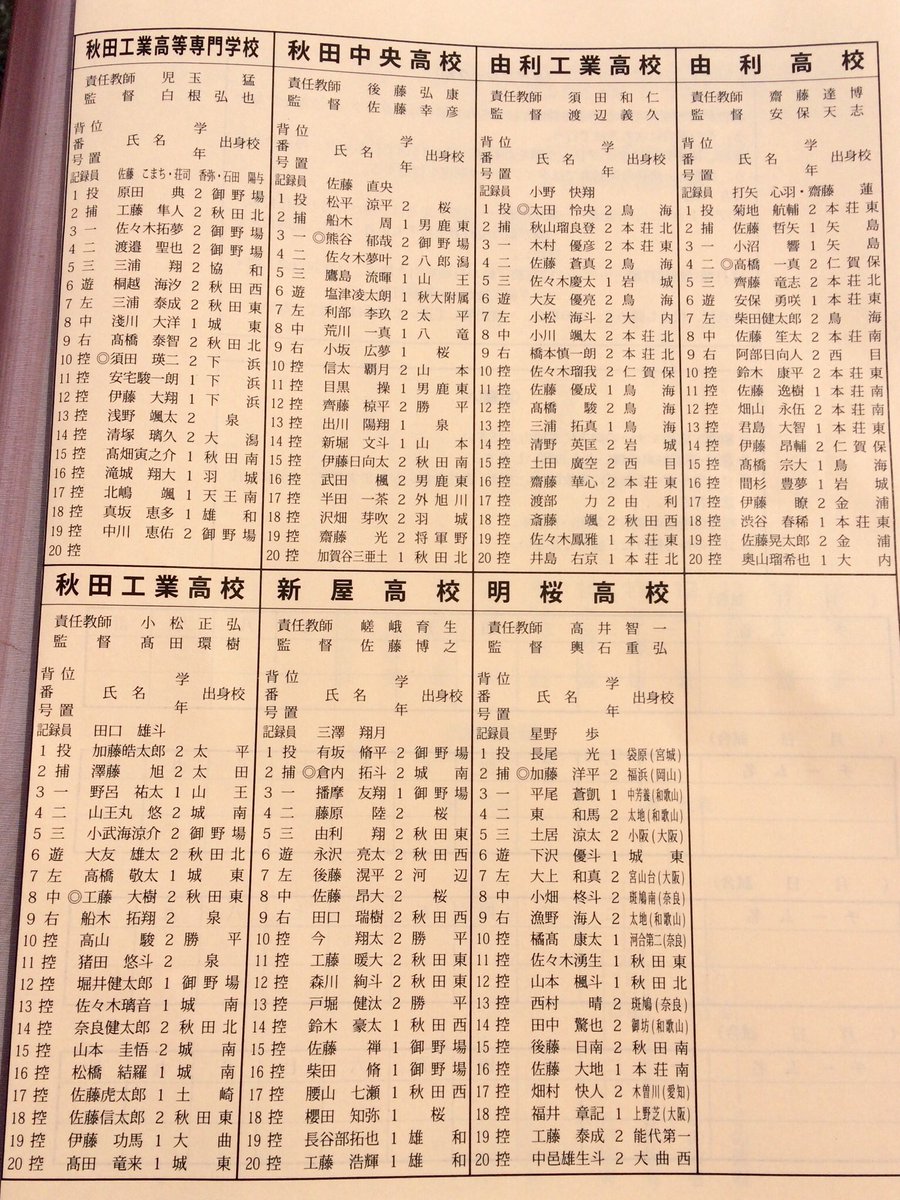 秋田工業高等専門学校
責任教師 児玉 猛
監督 白根弘也
背番号 位置 氏名 学年 出身校
記録員 佐藤 こまち・荘司 香弥・石田 陽与
1 投 原田 典 2 御野場
2 捕 工藤 隼人 2 秋田北
3 一 佐々木拓夢 2 御野場
4 二 渡邉 聖也 2 御野場
5 三 三浦 翔 2 協和
6 遊 桐越 海汐 2 秋田西
7 左 三浦 泰成 2 秋田東
8 中 淺川 大洋 1 城東
9 右 髙橋 泰智 2 秋田北
10 控 ◎須田 瑛二 2 下浜
11 控 安宅駿一朗 1 下浜
12 控 伊藤 大翔 1 下浜
13 控 浅野 颯太 2 泉
14 控 清塚 璃久 2 大潟
15 控 髙畑寅之介 1 秋田南
16 控 滝城 翔大 1 羽城
17 控 北嶋 颯 1 天王南
18 控 真坂 恵多 1 雄和
19 控 中川 恵佑 2 御野場
20 控
秋田中央高校
責任教師 後藤弘康
監督 佐藤幸彦
背番号 位置 氏名 学年 出身校
記録員 佐藤 直央
1 投 松平 涼平 2 桜
2 捕 船木 周 1 男鹿東
3 一 ◎熊谷 郁哉 2 御野場
4 二 佐々木夢叶 2 八郎潟
5 三 鷹島 流暉 1 山王
6 遊 塩津凌太朗 1 秋大附属
7 左 利部 李玖 2 太平
8 中 荒川 一真 1 八竜
9 右 小坂 広夢 1 桜
10 控 信太 覇月 2 山本
11 控 目黒 操 1 男鹿東
12 控 齊藤 椋平 2 勝平
13 控 出川 陽翔 1 泉
14 控 新堀 文斗 1 山本
15 控 伊藤日向太 2 秋田南
16 控 武田 楓 2 男鹿東
17 控 半田 一茶 2 外旭川
18 控 沢畑 芽吹 2 羽城
19 控 齋藤 光 2 将軍野
20 控 加賀谷三亜土 1 秋田北
由利工業高校
責任教師 須田和仁
監督 渡辺義久
背番号 位置 氏名 学年 出身校
記録員 小野 快翔
1 投 ◎太田 怜央 2 鳥海
2 捕 秋山瑠良登 2 本荘北
3 一 木村 優彦 2 本荘東
4 二 佐藤 蒼真 2 鳥海
5 三 佐々木慶太 1 岩城
6 遊 大友 優亮 2 鳥海
7 左 小松 海斗 2 大内
8 中 小川 颯太 2 本荘北
9 右 橋本慎一朗 2 本荘北
10 控 佐々木瑠我 2 仁賀保
11 控 佐藤 優成 1 鳥海
12 控 髙橋 駿 2 鳥海
13 控 三浦 拓真 1 鳥海
14 控 清野 英匡 2 岩城
15 控 土田 廣空 2 西目
16 控 齋藤 華心 2 本荘東
17 控 渡部 力 2 由利
18 控 斎藤 颯 2 秋田西
19 控 佐々木鳳雅 1 本荘東
20 控 井島 右京 1 本荘北
由利高校
責任教師 齋藤達博
監督 安保天志
背番号 位置 氏名 学年 出身校
記録員 打矢 心羽・齋藤 蓮
1 投 菊地 航輔 2 本荘東
2 捕 佐藤 哲矢 1 矢島
3 一 小沼 響 1 矢島
4 二 ◎高橋 一真 2 仁賀保
5 三 齊藤 竜志 2 本荘北
6 遊 安保 勇咲 1 本荘東
7 左 柴田健太郎 2 鳥海
8 中 佐藤 笙太 2 本荘南
9 右 阿部日向人 2 西目
10 控 鈴木 康平 2 本荘東
11 控 佐藤 逸樹 1 本荘南
12 控 畑山 永伍 2 本荘南
13 控 君島 大智 1 本荘東
14 控 伊藤 昂輔 2 仁賀保
15 控 髙橋 宗大 1 鳥海
16 控 間杉 豊夢 1 岩城
17 控 伊藤 瞭 2 金浦
18 控 渋谷 春稀 1 本荘東
19 控 佐藤晃太郎 2 金浦
20 控 奥山瑠希也 1 大内
秋田工業高校
責任教師 小松正弘
監督 髙田環樹
背番号 位置 氏名 学年 出身校
記録員 田口 雄斗
1 投 加藤皓太郎 2 太平
2 捕 澤藤 旭 2 太田
3 一 野呂 祐太 1 山王
4 二 山王丸 悠 2 城南
5 三 小武海涼介 2 御野場
6 遊 大友 雄太 2 秋田北
7 左 高橋 敬太 1 城東
8 中 ◎工藤 大樹 2 秋田東
9 右 船木 拓翔 2 泉
10 控 高山 駿 2 勝平
11 控 猪田 悠斗 2 泉
12 控 堀井健太郎 1 御野場
13 控 佐々木璃音 1 城南
14 控 奈良健太郎 2 秋田北
15 控 山本 圭悟 2 城南
16 控 松橋 結羅 1 城南
17 控 佐藤虎太郎 1 土崎
18 控 佐藤信太郎 2 秋田東
19 控 伊藤 功馬 1 大曲
20 控 髙田 竜来 1 城東
新屋高校
責任教師 嵯峨育生
監督 佐藤博之
背番号 位置 氏名 学年 出身校
記録員 三澤 翔月
1 投 有坂 脩平 2 御野場
2 捕 ◎倉内 拓斗 2 城南
3 一 播摩 友翔 1 御野場
4 二 藤原 陸 2 桜
5 三 由利 翔 2 秋田東
6 遊 永沢 亮太 2 秋田西
7 左 後藤 滉平 2 河辺
8 中 佐藤 昂大 2 桜
9 右 田口 瑞樹 2 秋田西
10 控 今 翔太 2 勝平
11 控 工藤 暖大 2 秋田東
12 控 森川 絢斗 2 秋田東
13 控 戸堀 健汰 2 勝平
14 控 鈴木 豪太 1 秋田西
15 控 佐藤 禅 1 御野場
16 控 柴田 脩 1 御野場
17 控 腰山 七瀬 1 秋田西
18 控 櫻田 知弥 1 桜
19 控 長谷部拓也 1 雄和
20 控 工藤 浩輝 1 雄和
明桜高校
責任教師 高井智一
監督 輿石重弘
背番号 位置 氏名 学年 出身校
記録員 星野 歩
1 投 長尾 光 1 袋原(宮城)
2 捕 ◎加藤 洋平 2 福浜(岡山)
3 一 平尾 蒼凱 1 中芳養(和歌山)
4 二 東 和馬 2 太地(和歌山)
5 三 土居 涼太 2 小阪(大阪)
6 遊 下沢 優斗 1 城東
7 左 大上 和真 2 宮山台(大阪)
8 中 小畑 柊斗 2 斑鳩南(奈良)
9 右 漁野 海人 2 太地(和歌山)
10 控 橘髙 康太 1 河合第二(奈良)
11 控 佐々木湧生 1 秋田東
12 控 山本 楓斗 1 秋田北
13 控 西村 晴 2 斑鳩(奈良)
14 控 田中 驚也 2 御坊(和歌山)
15 控 後藤 日南 2 秋田南
16 控 佐藤 大地 1 本荘南
17 控 畑村 快人 2 木曽川(愛知)
18 控 福井 章記 1 上野芝(大阪)
19 控 工藤 泰成 2 能代第一
20 控 中邑雄生斗 2 大曲西